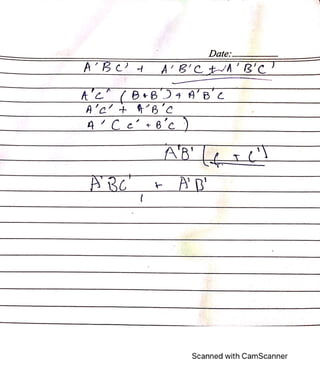 Date:
A'BC' + A'B'C + A'B'C'
A'C' (B+B') + A'B'C
A'C' + A'B'C
A'(C'+B'C)
A'B' (C + C')
A'BC' + A'B'
Scanned with CamScanner